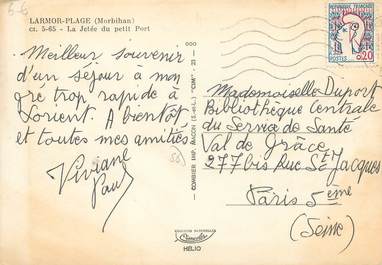 5-6
LARMOR-PLAGE (Morbihan)
cx. 5-65 - La Jetée du petit Port
Meilleur souvenir
d'un séjour à mon
gré trop rapide à
Lorient. A bientôt
et toutes mes amitiés
Viviane
Paul
COMBIER IMP. MACON (S.-et-L.) "CIM"
HÉLIO
REPUBLIQUE FRANÇAISE
POSTES
0,20
Mademoiselle Duport
Bibliothèque Centrale
du Service de Santé
Val de Grâce
277 bis Rue St Jacques
Paris 5eme
(Seine)